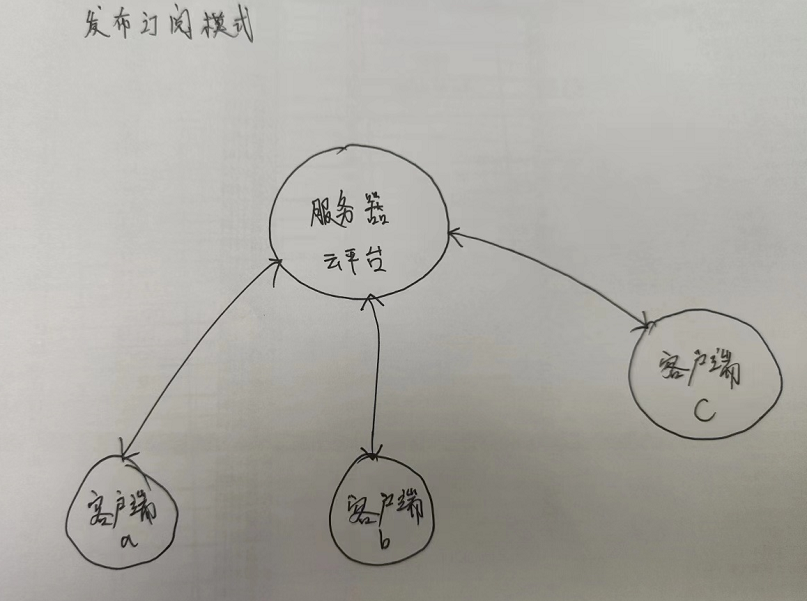 发布订阅模式
服务器
云平台
客户端
c
客户端
a
客户端
b